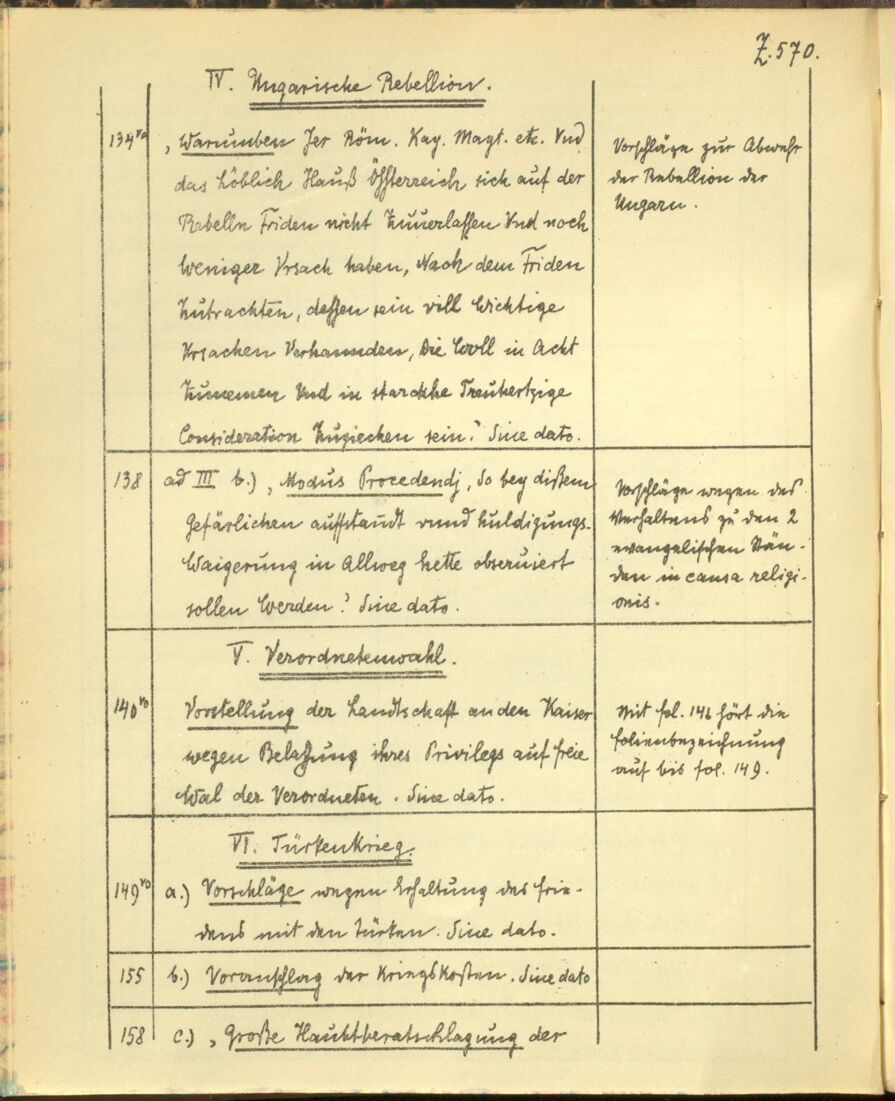 Z. 570.
IV. Ungarische Rebellion.
134vo
„Warumben Jer Röm. Kay. Mayt. etc. Vnd
das Löblich Hauß Össterreich sich auf der
Rebelln Friden nicht Zuuerlassen Vnd noch
Weniger Vrsach haben, Nach dem Friden
Zutrachten, dessen sein vill Wichtige
Vrsachen Verhannden, Die Woll in Acht
Zunemen Vnd in starckhe Treuhertzige
Consideration Zuziechen sein.“ Sine dato.
Vorschläge zur Abwehr
der Rebellion der
Ungarn.
138
ad III b.) „Modus Procedendj, So bey dißem
Gefärlichen auffstandt vnnd huldigungs-
Waigerung in Allweg hette obseruiert
sollen Werden.“ Sine dato.
Vorschläge wegen des
Verhaltens zu den 2
evangelischen Stän-
den in causa religi-
onis.
V. Verordnetenwahl.
140vo
Vorstellung der Landtschaft an den Kaiser
wegen Belassung ihres Privilegs auf freie
Wal der Verordneten. Sine dato.
Mit fol. 146 hört die
Folienbezeichnung
auf bis fol. 149.
VI. Türkenkrieg.
149vo
a.) Vorschläge wegen Erhaltung des Frie-
dens mit den Türken. Sine dato.
155
b.) Voranschlag der Kriegskosten. Sine dato
158
c.) „Große Haubtberatschlagung der